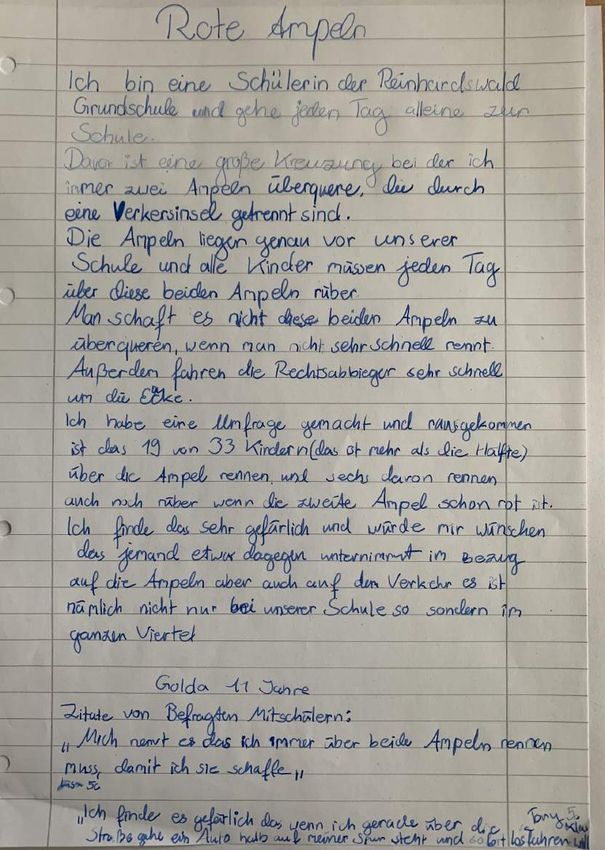 Rote Ampeln
Ich bin eine Schülerin der Reinhardswald
Grundschule und gehe jeden Tag alleine zur
Schule.
Davor ist eine große Kreuzung bei der ich
immer zwei Ampeln überquere, die durch
eine Verkersinsel getrennt sind.
Die Ampeln liegen genau vor unserer
Schule und alle Kinder müssen jeden Tag
über diese beiden Ampeln rüber
Man schaft es nicht diese beiden Ampeln zu
überqueren, wenn man nicht sehr schnell rennt.
Außerdem fahren die Rechtsabbieger sehr schnell
um die Ecke.
Ich habe eine Umfrage gemacht und rausgekommen
ist das 19 von 33 Kindern (das ist mehr als die Hälfte)
über die Ampel rennen, und sechs davon rennen
auch noch rüber wenn die zweite Ampel schon rot ist.
Ich finde das sehr gefärlich und würde mir wünschen
das jemand etwas dagegen unternimmt im bezug
auf die Ampeln aber auch auf den Verkehr es ist
nämlich nicht nur bei unserer Schule so sondern im
ganzen Viertel
Golda 11 Jahre
Zitate von Befragten Mitschülern:
„Mich nervt es das ich immer über beide Ampeln rennen
muss, damit ich sie schaffe„
5c
„Ich finde es gefärlich das wenn ich gerade über die
Straße gehe ein Auto halb auf meiner Spur steht und losfahren will
Tony 5